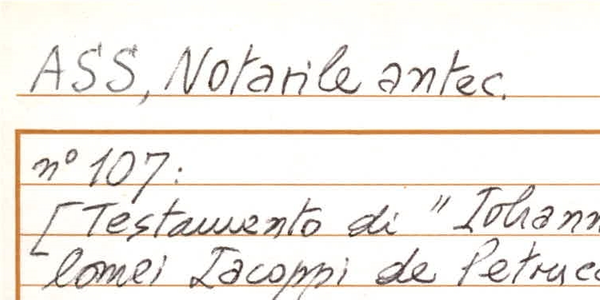 ASS, Notarile antec.
n° 107:
[Testamento di "Iohann
lomei Iacoppi de Petrucc